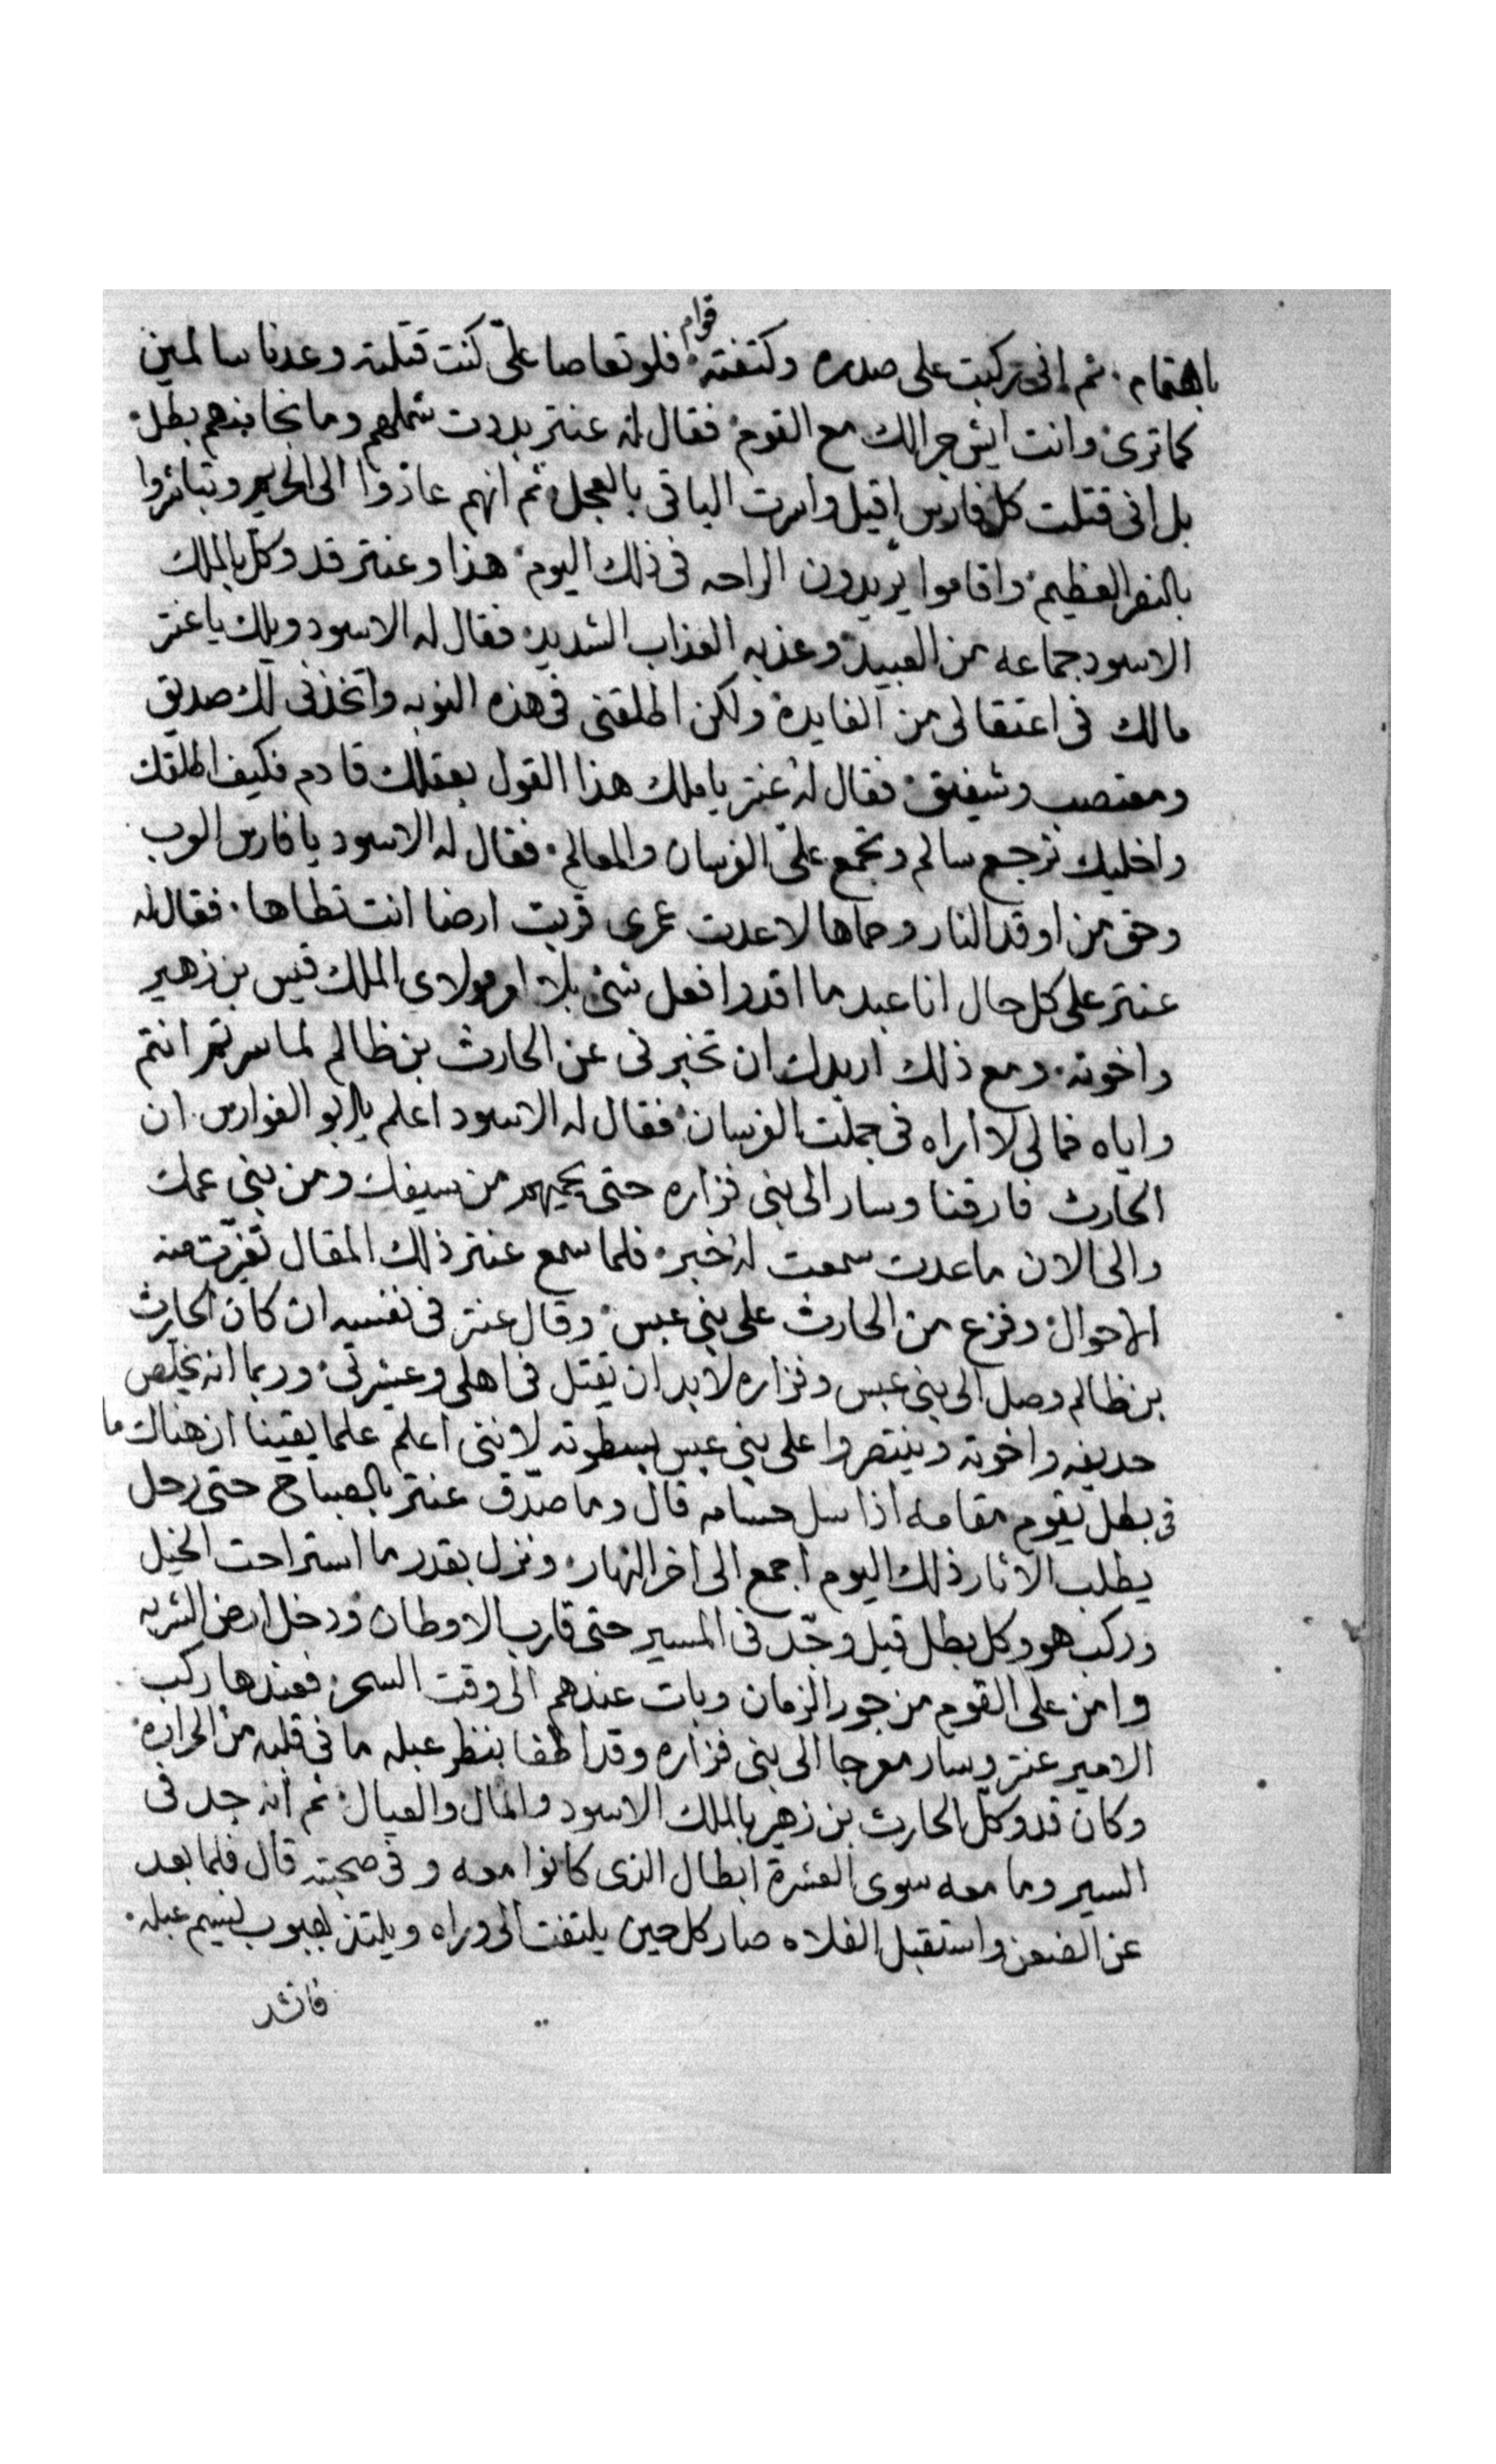 باهتمام. ثم انى تركبت على صدره وكتفته قوام فلو تعاصا علىّ كنت قتلته وعدنا سالمين
كما ترى وانت ايش جرا لك مع القوم فقال له عنتر بددت شملهم وما نجا منهم بطل
بل انى قتلت كل فارس اقيل واسرت الباقى بالعجل ثم انهم عادوا الى الحريم وتباشروا
بالنصر العظيم واقاموا يريدون الراحه فى ذلك اليوم هذا وعنتر قد وكل بالملك
الاسود جماعه من العبيد وعذبه العذاب الشديد فقال له الاسود ويلك يا عنتر
مالك فى اعتقالى من الفايدة ولكن اطلقنى فى هذه النوبه واتخذنى لك صديق
ومعتصب وشفيق فقال له عنتر يا ملك هذا القول بعقلك قادم فكيف اطلقك
واخليك ترجع سالم وتجمع علىّ الفرسان والمعالم. فقال له الاسود يا فارس العرب
وحق من اوقد النار وحماها لا عدت عمرى قربت ارضا انت تطاها. فقال له
عنتر على كل حال انا عبد ما اقدر افعل شئ بلا امر مولاى الملك قيس بن زهير
واخوته. ومع ذلك اريدك ان تخبرنى عن الحارث بن ظالم لما سرتم انتم
واياه فمالى لا اراه فى جملت الفرسان فقال له الاسود اعلم يا ابو الفوارس. ان
الحارث فارقنا وسار الى بنى فزاره حتى يحميهم من سيفك ومن بنى عمك
والى الان ما عدت سمعت له خبر فلما سمع عنتر ذلك المقال تغيرت منه
الاحوال وفزع من الحارث على بنى عبس وقال عنتر فى نفسه ان كان الحارث
بن ظالم وصل الى بنى عبس وفزاره لابد ان يقتل فى اهلى وعشيرتى وربما انه يخلص
حديفه واخوته وينتصروا على بنى عبس بسطوته لاننى اعلم علما يقينا ان هناك ما
فى بطل يقوم مقامه اذا سل حسامه قال وما صدّق عنتر بالصباح حتى رحل
يطلب الاثار ذلك اليوم اجمع الى اخر النهار ونزل بقدر ما استراحت الخيل
وركب هو وكل بطل قيل وجّد فى المسير حتى قارب الاوطان ودخل ارض الشربه
وامن على القوم من جور الزمان وبات عندهم الى وقت السحر فعندها ركب
الامير عنتر وسار معرجا الى بنى فزاره وقد اطفا بنظر عبله ما فى قلبه من الحراره
وكان قد وكل الحارث بن زهير بالملك الاسود والمال والعيال ثم انه جد فى
السير وما معه سوى العشرة ابطال الذى كانوا معه و فى صحبته قال فلما بعد
عن الضعن واستقبل الفلاه صار كل حين يلتفت الى وراه ويلتذ بهبوب نسيم عبله.
فانشد